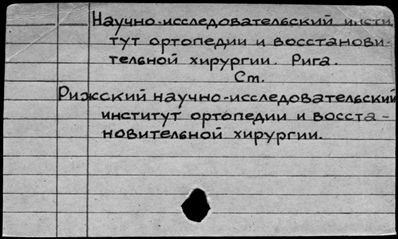 Научно-исследовательский инсти
тут ортопедии и восстанови-
тельной хирургии. Рига.
См.
Рижский научно-исследовательский
институт ортопедии и восста-
новительной хирургии.